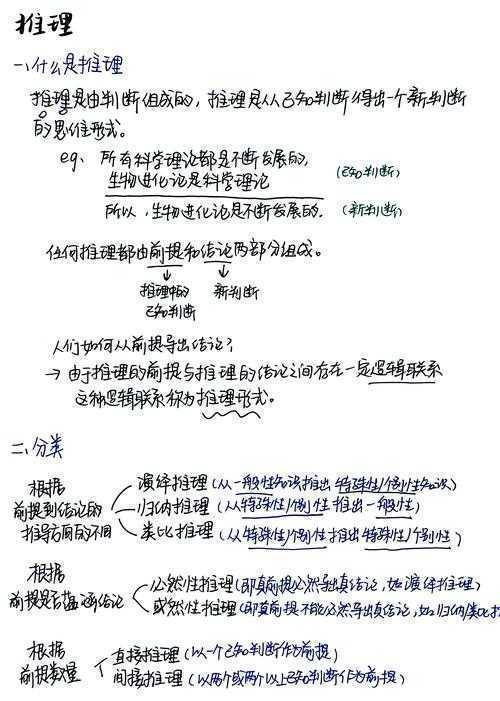 推理
一、什么是推理
推理是由判断组成的，推理是从已知判断得出一个新判断
的思维形式。
eg、所有科学理论都是不断发展的，
生物进化论是科学理论 (已知判断)
所以，生物进化论是不断发展的. (新判断)
任何推理都由前提和结论两部分组成。
↓ ↓
推理中的 新判断
已知判断
人们如何从前提导出结论？
→ 由于推理的前提与推理的结论之间存在一定逻辑联系
这种逻辑联系称为推理形式。
二、分类
根据
前提到结论的
推导方向的不同
演绎推理 (从一般性知识推出特殊性/个别性知识)
归纳推理 (从特殊性/个别性推出一般性)
类比推理 (从特殊性/个别性推出特殊性/个别性)
根据
前提是否蕴涵结论
必然性推理 (即真前提必然导真结论，如演绎推理)
或然性推理 (即真前提不能必然导出真结论，如归纳/类比
根据
前提数量
直接推理 (以一个已知判断作为前提)
间接推理 (以两个或两个以上已知判断作为前提)